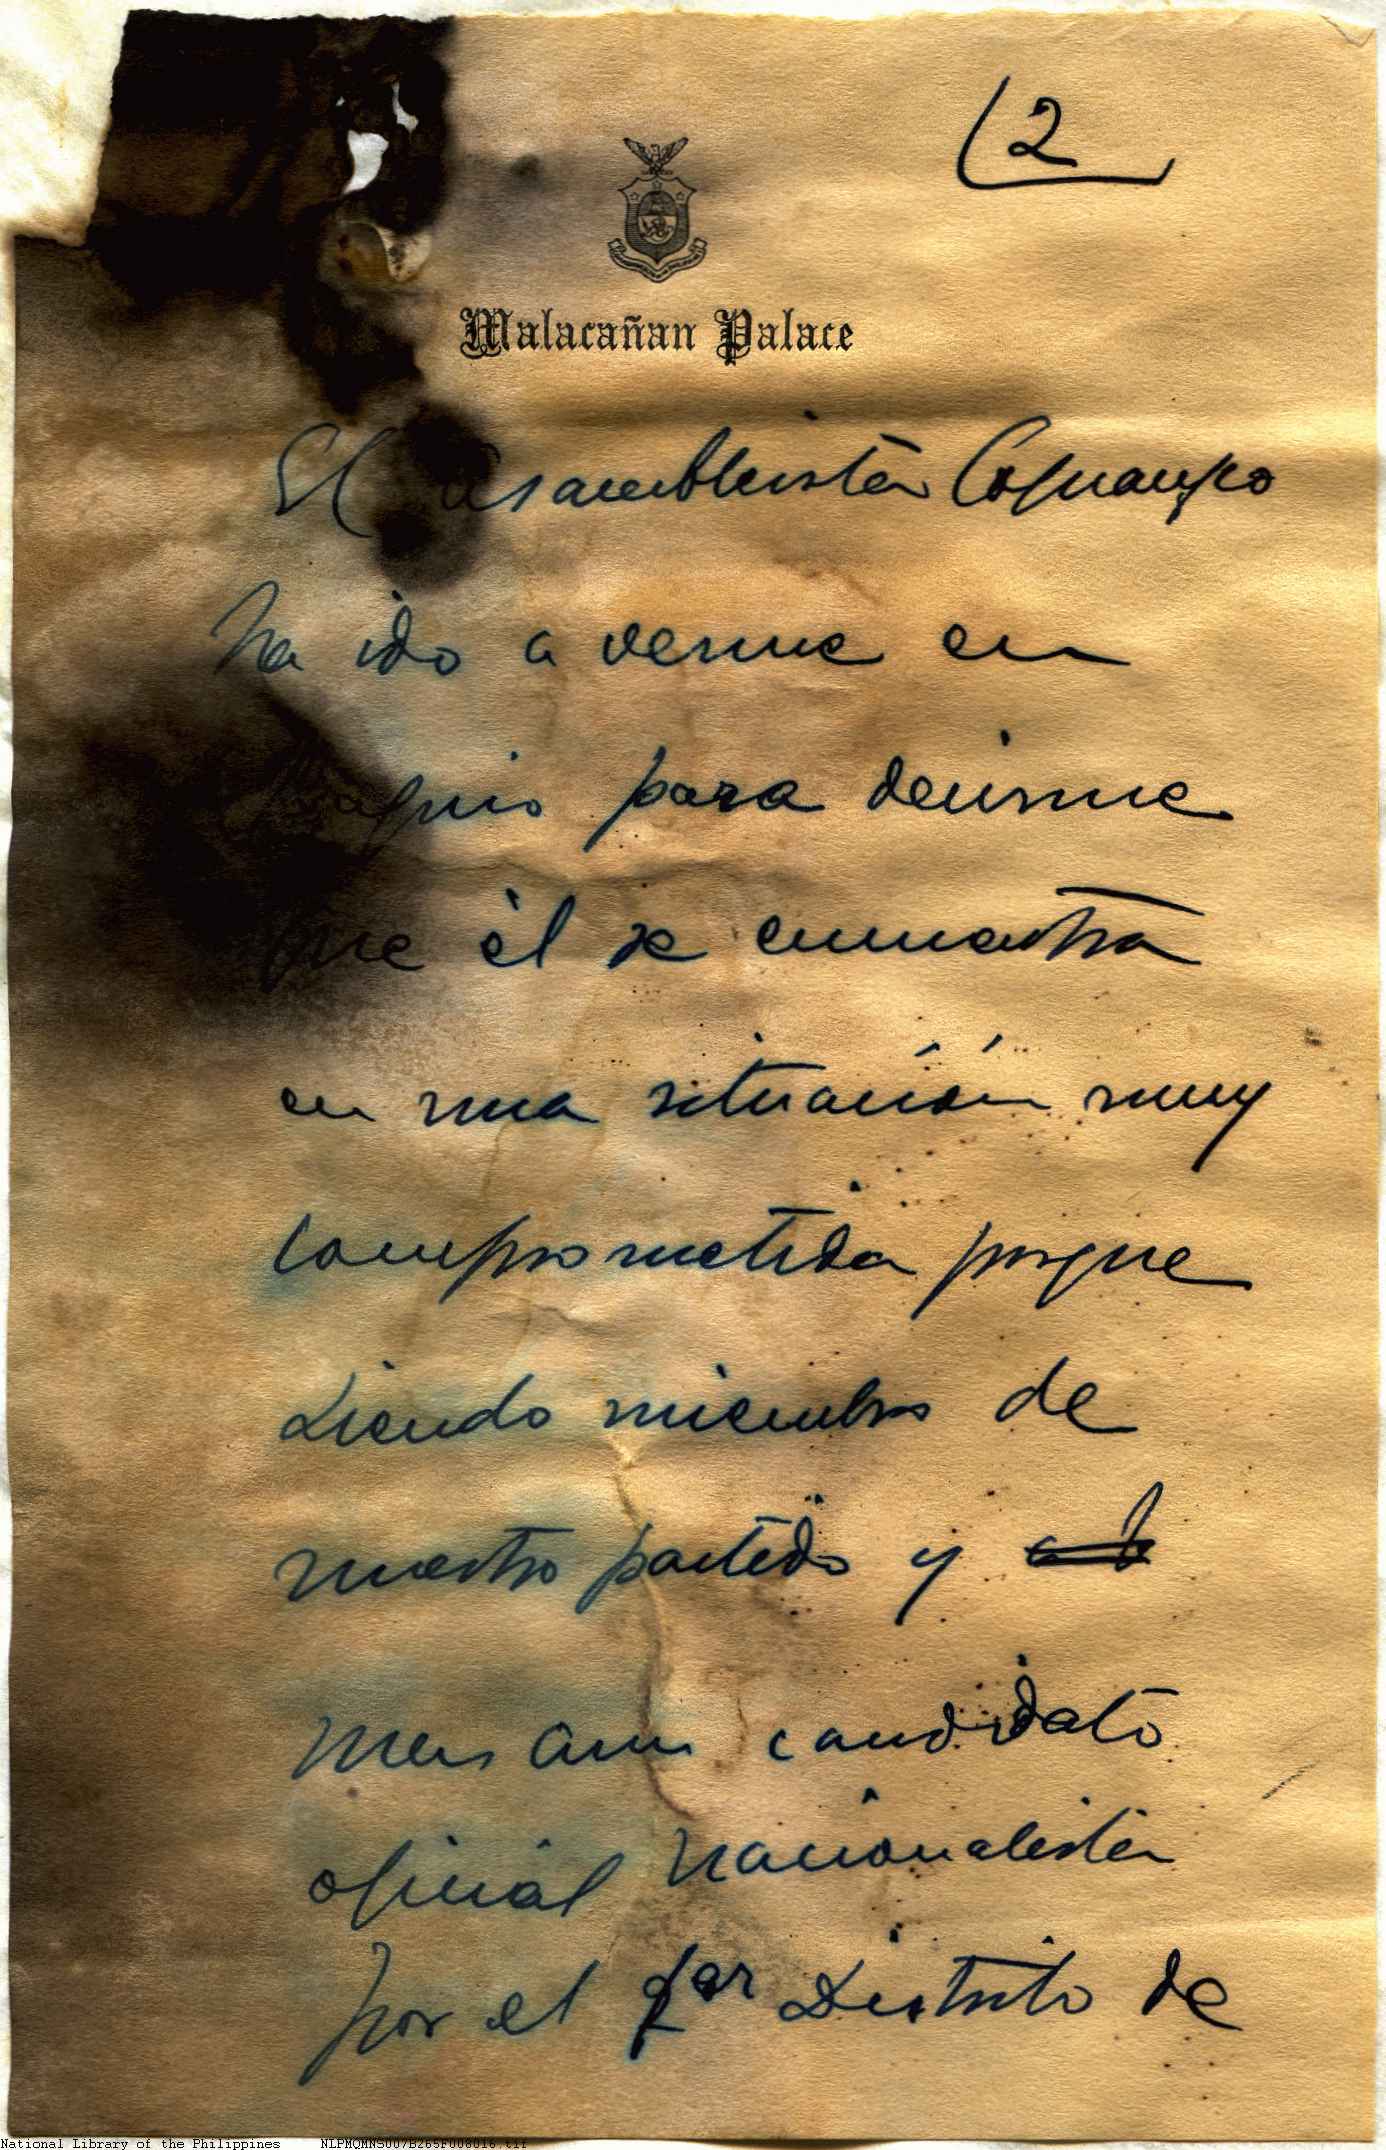 2
Malacañan Palace
El asambleista Cojuangco
ha ido a verme en
Baguio para decirme
que él se encuentra
en una situación muy
comprometida porque
siendo miembro de
nuestro partido y
mas aun candidato
oficial nacionalista
por el 1er Distrito de
National Library of the Philippines NLPMQMNS007B265F008016.tif